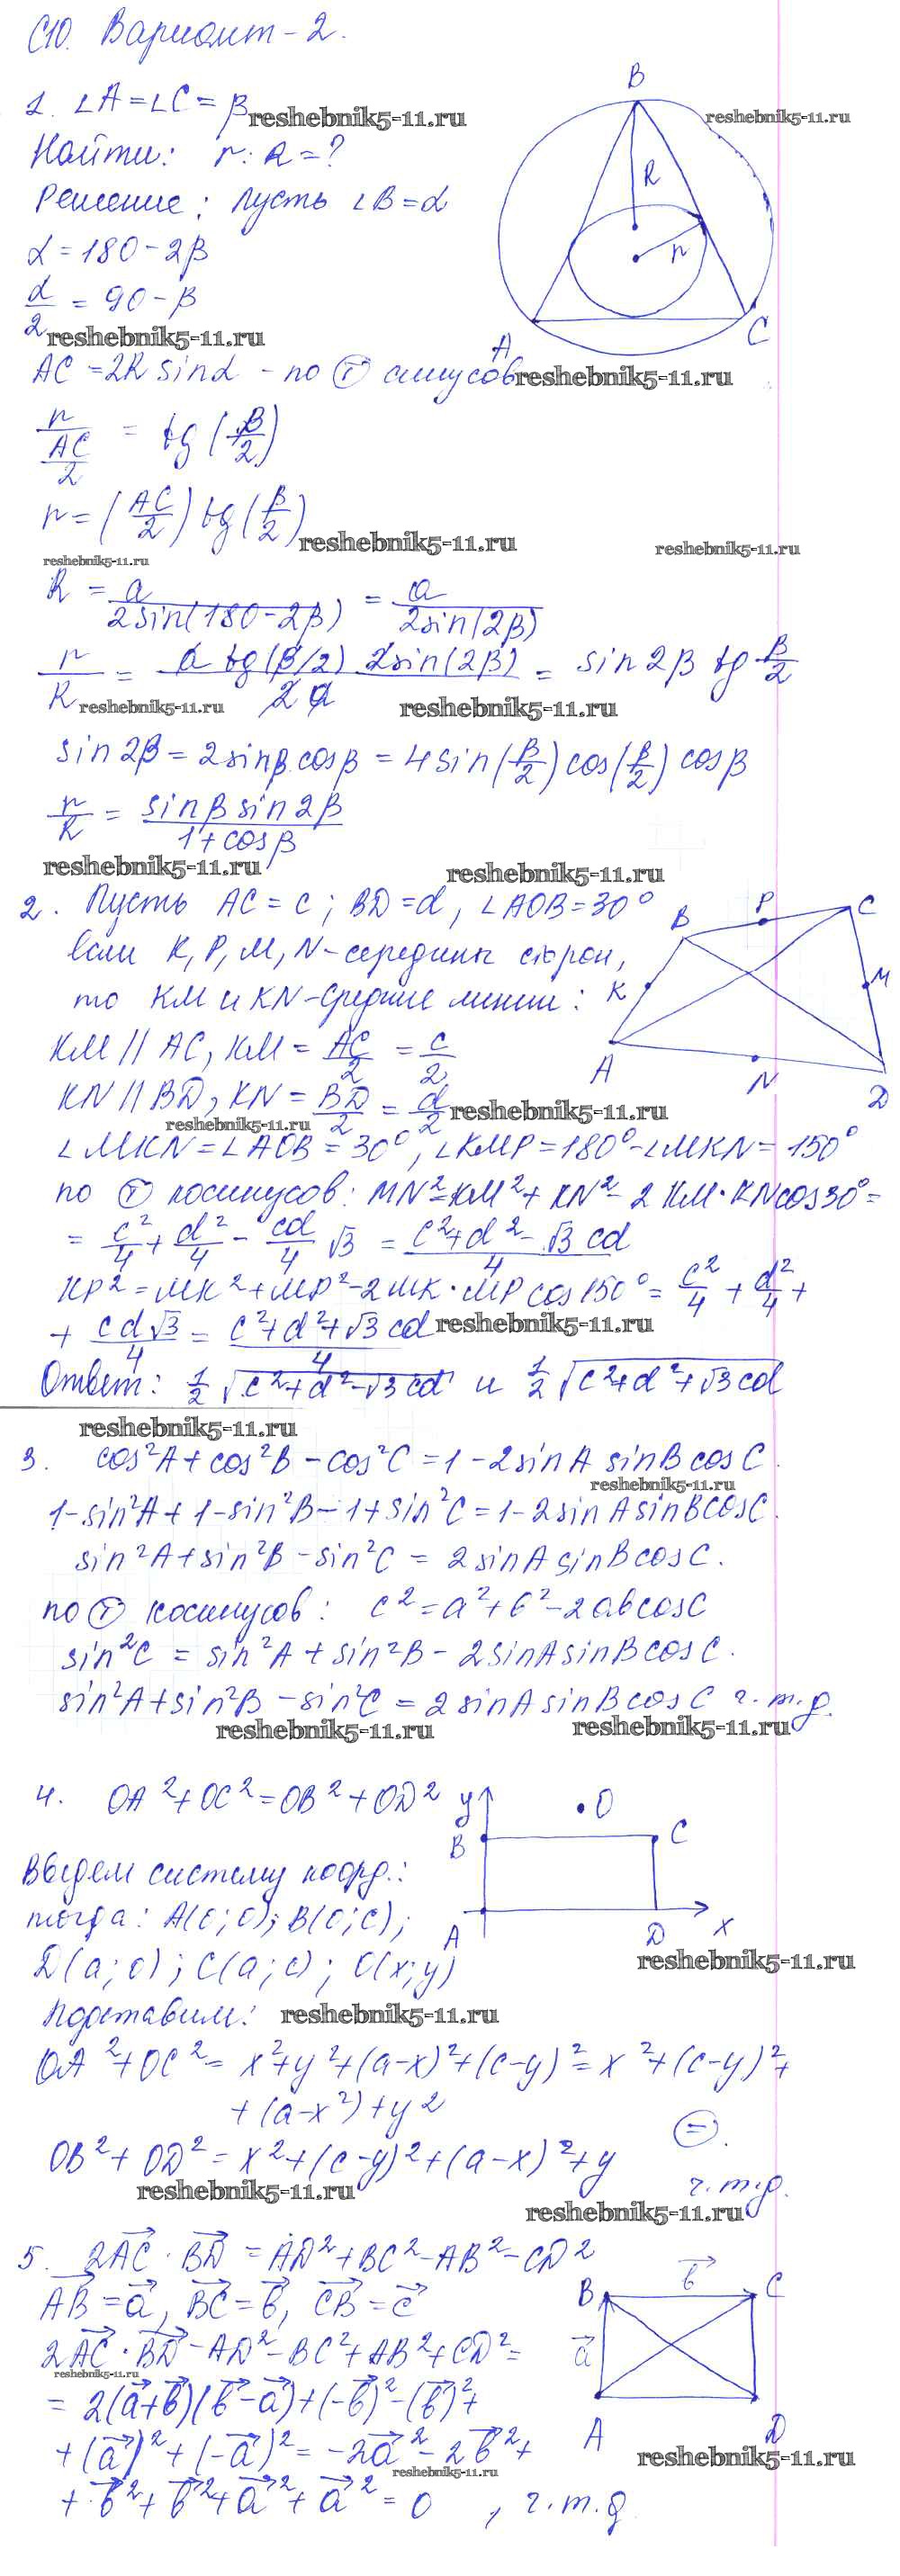 С10. Вариант-2.
B
1. ∠A=∠C=β
reshebnik5-11.ru
reshebnik5-11.ru
Найти: r:R=?
R
Решение: пусть ∠B=α
r
α=180-2β
α/2 = 90-β
reshebnik5-11.ru
A
C
AC=2R sinα - по Т синусов
reshebnik5-11.ru
r/(AC/2) = tg(β/2)
r=(AC/2) tg(β/2)
reshebnik5-11.ru
reshebnik5-11.ru
reshebnik5-11.ru
R = a/(2sin(180-2β)) = a/(2sin(2β))
r/R = (a tg(β/2) 2sin(2β))/(2a) = sin2β tg β/2
reshebnik5-11.ru
reshebnik5-11.ru
sin2β=2sinβ cosβ=4sin(β/2)cos(β/2)cosβ
r/R = (sinβ sin2β)/(1+cosβ)
reshebnik5-11.ru
reshebnik5-11.ru
2. Пусть AC=c; BD=d, ∠AOB=30°
B P C
если K,P,M,N-середины сторон,
K M
то KM и KN-средние линии:
A N D
KM || AC, KM = AC/2 = c/2
KN || BD, KN = BD/2 = d/2
reshebnik5-11.ru
reshebnik5-11.ru
∠MKN=∠AOB=30°, ∠KMP=180°-∠MKN=150°
по Т косинусов: MN²=KM²+KN²-2KM·KNcos30°=
= c²/4 + d²/4 - cd/4 √3 = (c²+d²-√3 cd)/4
KP²=MK²+MP²-2MK·MP cos150°= c²/4 + d²/4 +
+ cd√3/4 = (c²+d²+√3 cd)/4
reshebnik5-11.ru
Ответ: 1/2 √(c²+d²-√3 cd) и 1/2 √(c²+d²+√3 cd)
reshebnik5-11.ru
3. cos²A+cos²B-cos²C=1-2sinA sinB cosC
reshebnik5-11.ru
1-sin²A+1-sin²B-1+sin²C=1-2sinAsinBcosC.
sin²A+sin²B-sin²C=2sinAsinBcosC.
по Т косинусов: c²=a²+b²-2abcosC
sin²C=sin²A+sin²B-2sinAsinBcosC.
sin²A+sin²B-sin²C=2sinAsinBcosC ч.т.д.
reshebnik5-11.ru
reshebnik5-11.ru
4. OA²+OC²=OB²+OD²
y O
B C
Введем систему коорд.:
тогда: A(0;0); B(0;c);
A D x
D(a;0); C(a;c); O(x;y)
reshebnik5-11.ru
Подставим:
reshebnik5-11.ru
OA²+OC²=x²+y²+(a-x)²+(c-y)²=x²+(c-y)²+
+(a-x²)+y2
=.
OB²+OD²=x²+(c-y)²+(a-x)²+y
ч.т.д.
reshebnik5-11.ru
reshebnik5-11.ru
5. 2AC·BD=AD²+BC²-AB²-CD²
b
AB=a, BC=b, CB=c
B C
2AC·BD-AD²-BC²+AB²+CD²=
a
reshebnik5-11.ru
=2(a+b)(b-a)+(-b)²-(b)²+
A D
+(a)²+(-a)²=-2a²-2b²+
reshebnik5-11.ru
reshebnik5-11.ru
+b²+b²+a²+a²=0, ч.т.д